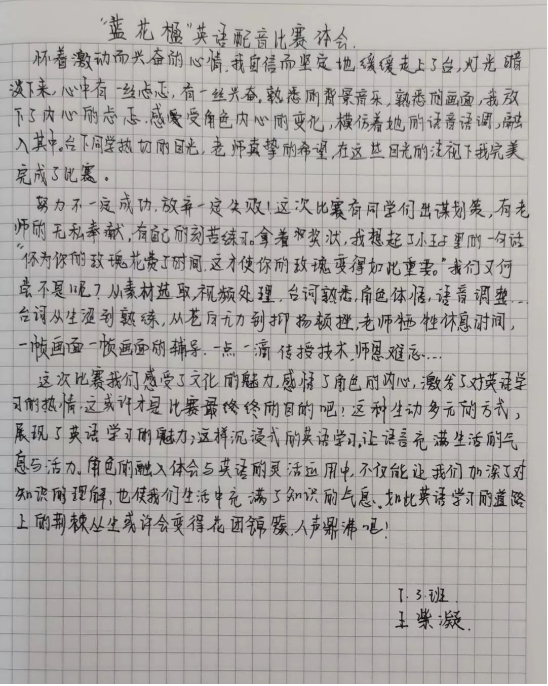 “蓝花楹”英语配音比赛体会.
怀着激动而兴奋的心情,我自信而坚定地缓缓走上了台,灯光暗
淡下来,心中有一丝忐忑,有一丝兴奋.熟悉的背景音乐,熟悉的画面,我放
下了内心的忐忑.感受角色内心的变化,模仿着她的语音语调,融
入其中.台下同学热切的目光,老师真挚的希望,在这些目光的注视下我完美
完成了比赛。
努力不一定成功,放弃一定失败!这次比赛有同学们出谋划策,有老
师的无私奉献,有自己的刻苦练习.拿着奖状,我想起了小王子里的一句话
“你为你的玫瑰花费了时间,这才使你的玫瑰变得如此重要。”我们又何
尝不是呢?从素材选取,视频处理,台词熟悉,角色体悟,语音调整...
台词从生涩到熟练,从苍白无力到抑扬顿挫,老师牺牲休息时间,
一帧画面一帧画面的辅导,一点一滴传授技术,师恩难忘...
这次比赛我们感受了文化的魅力,感悟了角色的内心,激发了对英语学
习的热情,这或许才是比赛最终的目的吧!这种生动多元的方式,
展现了英语学习的魅力,这样沉浸式的英语学习,让语言充满生活的气
息与活力.角色的融入体会与英语的灵活运用中,不仅能让我们加深了对
知识的理解,也使我们生活中充满了知识的气息.如此英语学习的道路
上的荆棘丛生或许会变得花团锦簇,人声鼎沸吧!
1.3.班.
王紫凝.